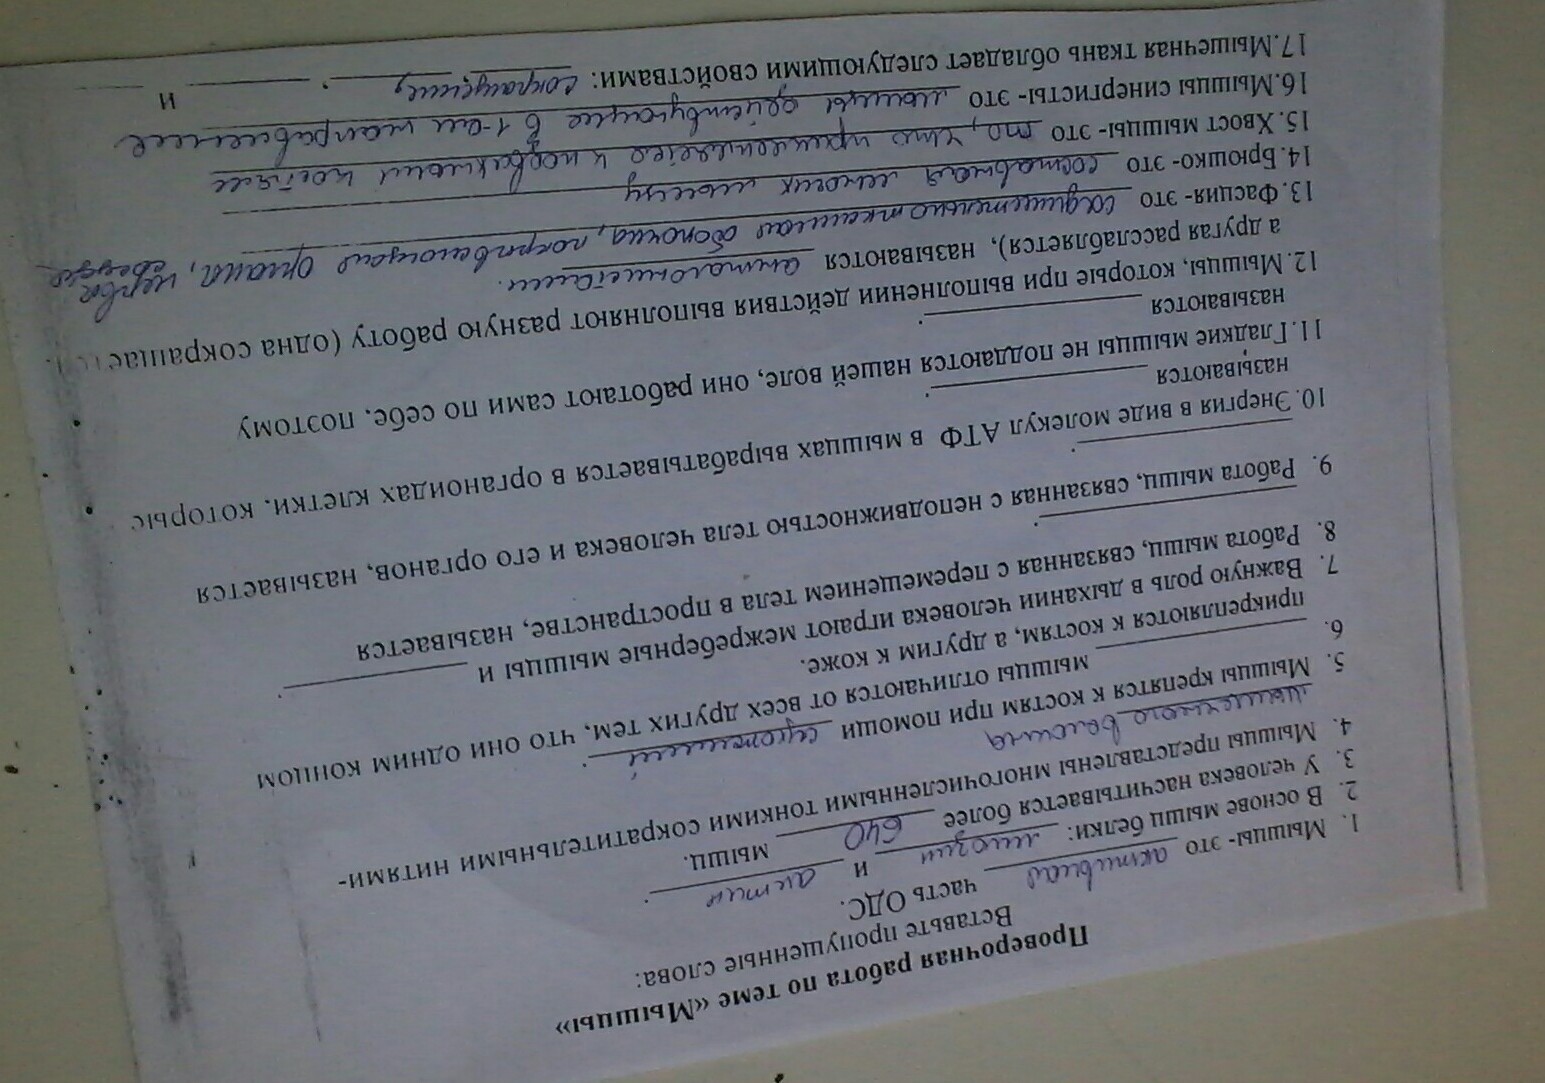 Проверочная работа по теме «Мышцы»
Вставьте пропущенные слова:
1. Мышцы- это активная часть ОДС.
2. В основе мышц белки: миозин и актин.
3. У человека насчитывается более 640 мышц.
4. Мышцы представлены многочисленными тонкими сократительными нитями-
мышечного волокна
5. Мышцы крепятся к костям при помощи сухожилий.
6. ____ мышцы отличаются от всех других тем, что они одним концом
прикрепляются к костям, а другим к коже.
7. Важную роль в дыхании человека играют межреберные мышцы и ____.
8. Работа мышц, связанная с перемещением тела в пространстве, называется
____.
9. Работа мышц, связанная с неподвижностью тела человека и его органов, называется
____.
10. Энергия в виде молекул АТФ в мышцах вырабатывается в органоидах клетки. которые
называются ____.
11. Гладкие мышцы не поддаются нашей воле, они работают сами по себе. поэтому
называются ____.
12. Мышцы, которые при выполнении действия выполняют разную работу (одна сокращается.
а другая расслабляется), называются антагонистами.
13. Фасция- это соединительно тканная оболочка, покрывающая органы, нервы, сосуды
14. Брюшко- это составная многих мышц
15. Хвост мышцы- это то, что прикрепляется к подвижным костям
16. Мышцы синергисты- это мышцы действующие в 1-ом направлении
17. Мышечная ткань обладает следующими свойствами: сокращение, ____, ____ и ____